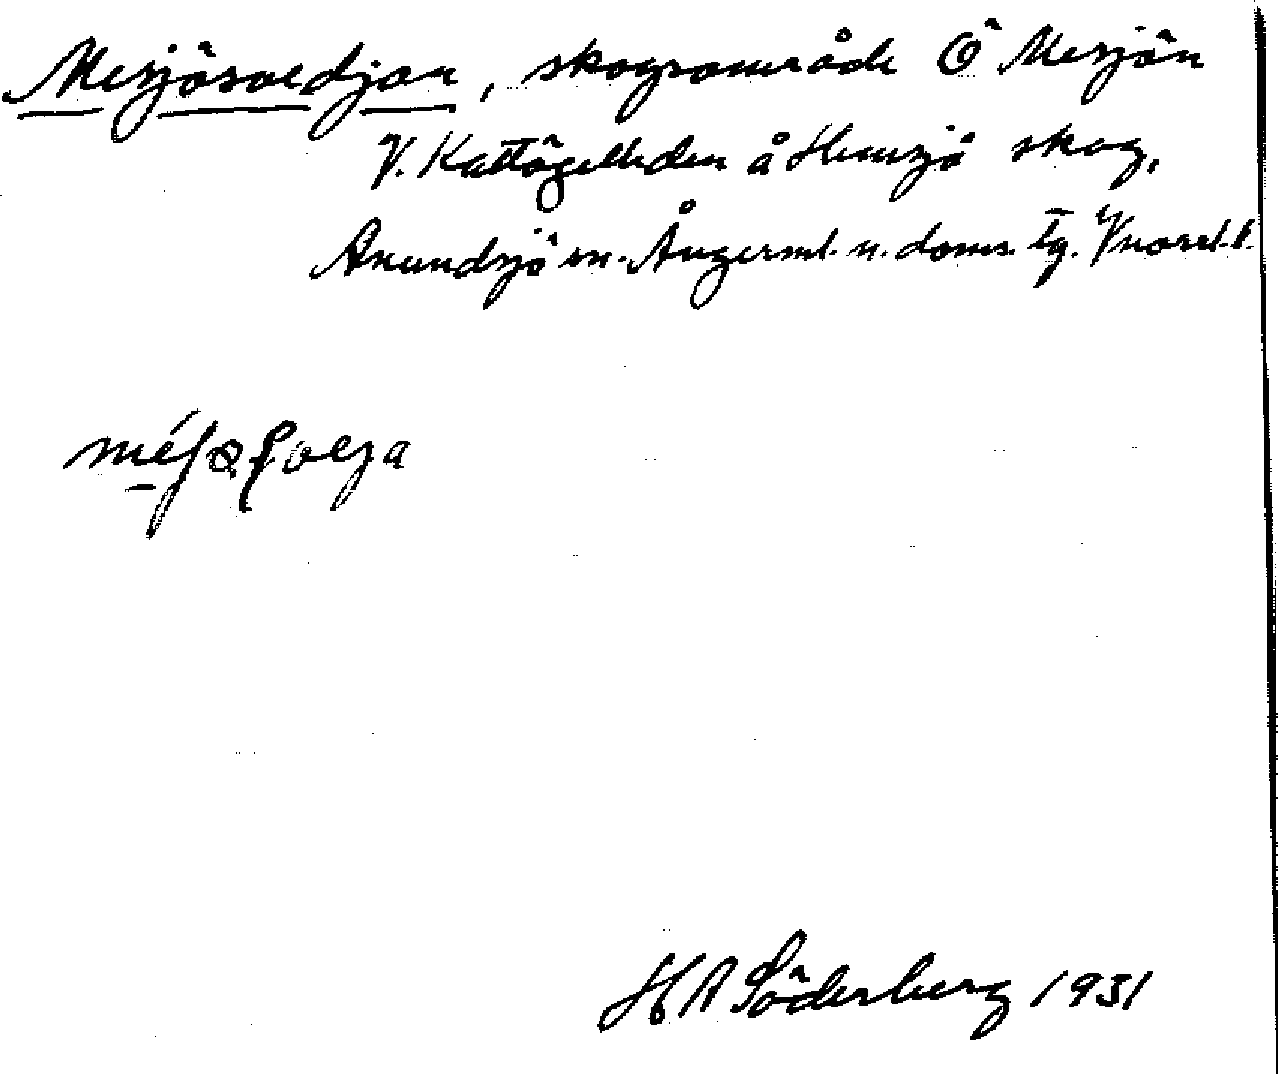 Mesjösvedjan, skogsområde Ö Mesjön
V. Kattögelliden å Hemsjö skog,
Anundsjö sn. Ångerml. n. doms. tg. Vnorrl. l.
H A Söderberg 1931